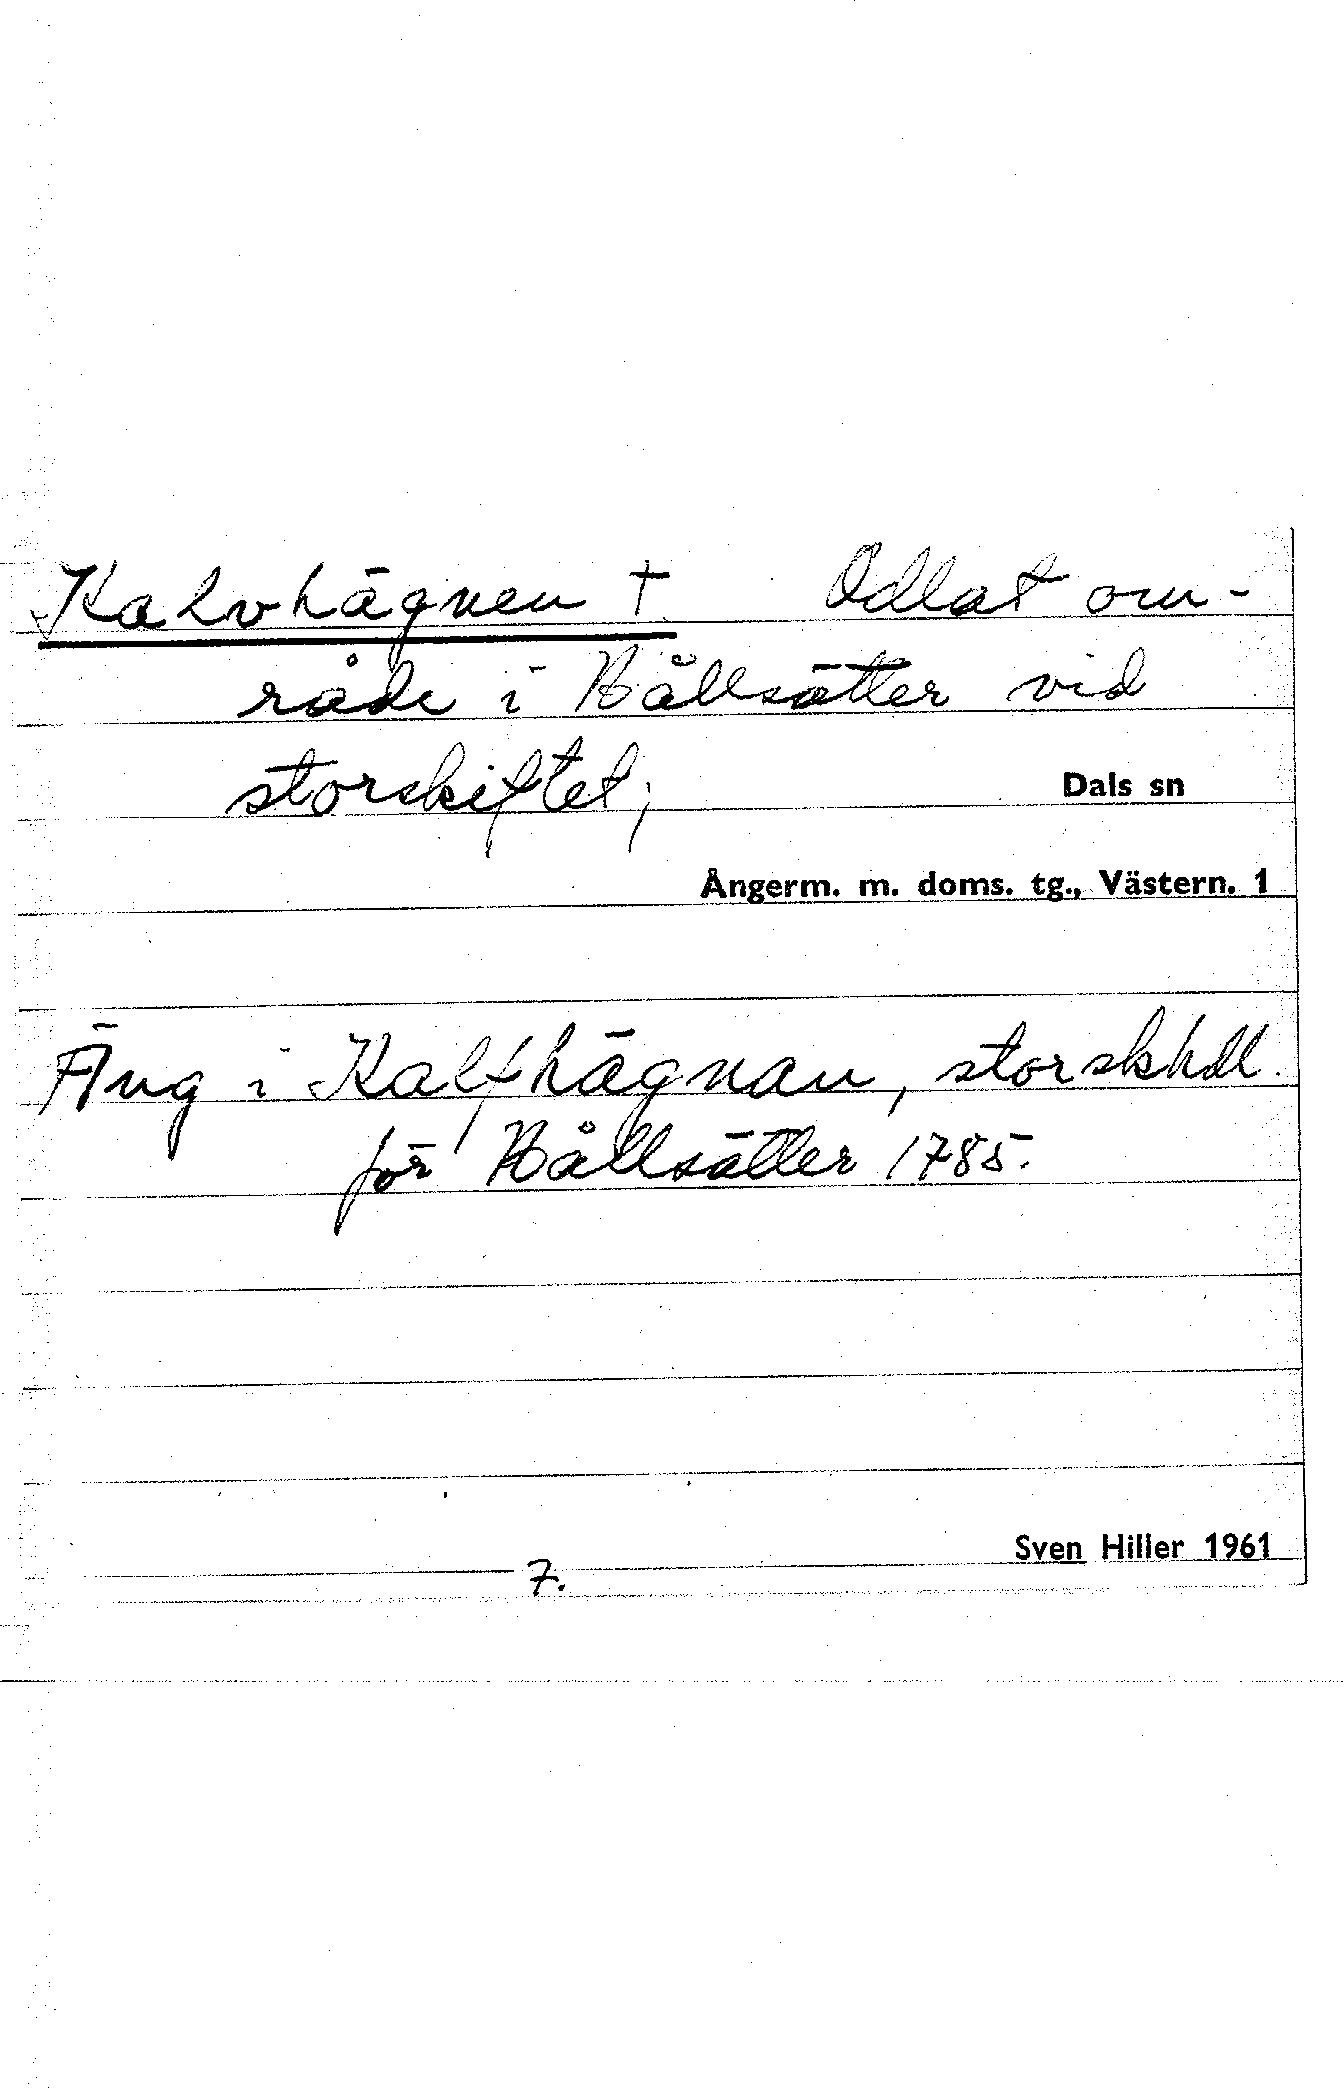 Kalvhägnen † Odlat om-
råde i Bållsätter vid
storskiftet;
Dals sn
Ångerm. m. doms. tg., Västern. 1
Äng i Kalfhägnan, storskhdl.
för Bållsätter 1785.
Sven Hiller 1961
7.